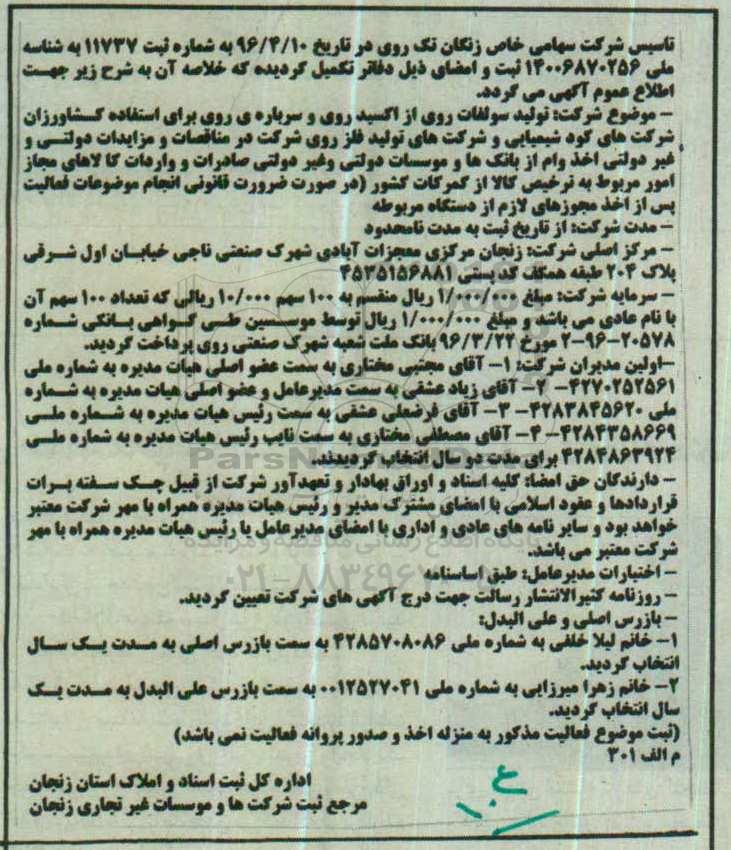 تاسیس شرکت سهامی خاص زنگان تک روی در تاریخ ۹۶/۴/۱۰ به شماره ثبت ۱۱۷۳۷ به شناسه
ملی ۱۴۰۰۶۸۷۰۲۵۶ ثبت و امضای ذیل دفاتر تکمیل گردیده که خلاصه آن به شرح زیر جهت
اطلاع عموم آگهی می گردد.
- موضوع شرکت: تولید سولفات روی از اکسید روی و سرباره ی روی برای استفاده کشاورزان
شرکت های کود شیمیایی و شرکت های تولید فلز روی شرکت در مناقصات و مزایدات دولتی و
غیر دولتی اخذ وام از بانک ها و موسسات دولتی وغیر دولتی صادرات و واردات کا لاهای مجاز
امور مربوط به ترخیص کالا از گمرکات کشور (در صورت ضرورت قانونی انجام موضوعات فعالیت
پس از اخذ مجوزهای لازم از دستگاه مربوطه
- مدت شرکت: از تاریخ ثبت به مدت نامحدود
- مرکز اصلی شرکت: زنجان مرکزی معجزات آبادی شهرک صنعتی ناجی خیابان اول شرقی
پلاک ۲۰۴ طبقه همکف کد پستی ۴۵۳۵۱۵۶۸۸۱
- سرمایه شرکت: مبلغ ۱/۰۰۰/۰۰۰ ریال منقسم به ۱۰۰ سهم ۱۰/۰۰۰ ریالی که تعداد ۱۰۰ سهم آن
با نام عادی می باشد و مبلغ ۱/۰۰۰/۰۰۰ ریال توسط موسسین طی گواهی بانکی شماره
۲-۹۶-۲۰۵۷۸ مورخ ۹۶/۳/۲۲ بانک ملت شعبه شهرک صنعتی روی پرداخت گردید.
-اولین مدیران شرکت: ۱- آقای مجتبی مختاری به سمت عضو اصلی هیات مدیره به شماره ملی
۴۲۷۰۲۵۲۵۶۱- ۲- آقای زیاد عشقی به سمت مدیرعامل و عضو اصلی هیات مدیره به شماره
ملی ۴۲۸۳۸۴۵۶۲۰- ۳- آقای فرضعلی عشقی به سمت رئیس هیات مدیره به شماره ملی
۴۲۸۴۳۵۸۶۶۹- ۴- آقای مصطفی مختاری به سمت نایب رئیس هیات مدیره به شماره ملی
۴۲۸۴۸۶۳۹۲۴ برای مدت دو سال انتخاب گردیدند.
- دارندگان حق امضا: کلیه اسناد و اوراق بهادار و تعهدآور شرکت از قبیل چک سفته برات
قراردادها و عقود اسلامی با امضای مشترک مدیر و رئیس هیات مدیره همراه با مهر شرکت معتبر
خواهد بود و سایر نامه های عادی و اداری با امضای مدیرعامل یا رئیس هیات مدیره همراه با مهر
شرکت معتبر می باشد.
- اختیارات مدیرعامل: طبق اساسنامه
- روزنامه کثیرالانتشار رسالت جهت درج آگهی های شرکت تعیین گردید.
- بازرس اصلی و علی البدل:
۱- خانم لیلا خلفی به شماره ملی ۴۲۸۵۷۰۸۰۸۶ به سمت بازرس اصلی به مدت یک سال
انتخاب گردید.
۲- خانم زهرا میرزایی به شماره ملی ۰۰۱۲۵۲۷۰۴۱ به سمت بازرس علی البدل به مدت یک
سال انتخاب گردید.
(ثبت موضوع فعالیت مذکور به منزله اخذ و صدور پروانه فعالیت نمی باشد)
م الف ۳۰۱
اداره کل ثبت اسناد و املاک استان زنجان
مرجع ثبت شرکت ها و موسسات غیر تجاری زنجان